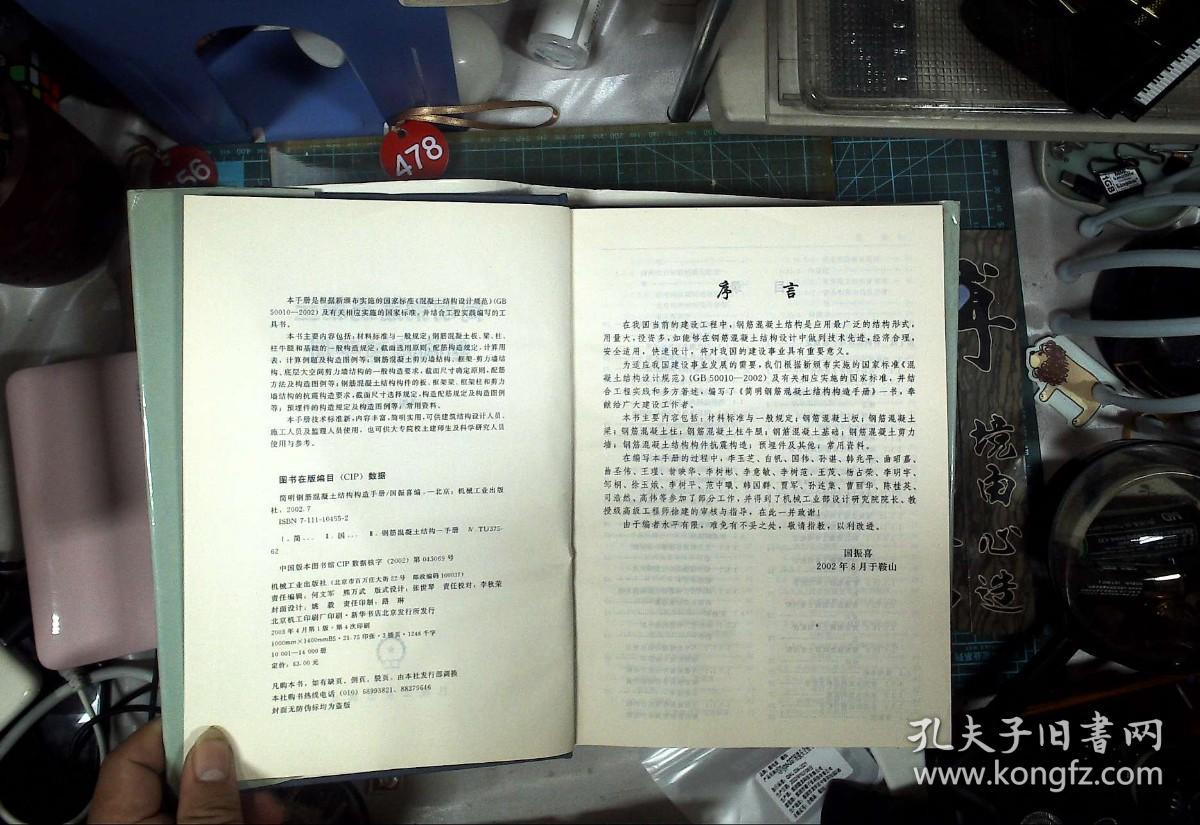 本手册是根据新颁布实施的国家标准《混凝土结构设计规范》(GB
50010—2002)及有关相应实施的国家标准,并结合工程实践编写的工
具书。
本书主要内容包括:材料标准与一般规定;钢筋混凝土板、梁、柱、
柱牛腿和基础的一般构造规定,截面选用原则,配筋构造规定,计算用
表、计算例题及构造图例等;钢筋混凝土剪力墙结构、框架-剪力墙结
构、底层大空间剪力墙结构的一般构造要求,截面尺寸确定原则,配筋
方法及构造图例等;钢筋混凝土结构构件的板、框架梁、框架柱和剪力
墙结构的抗震构造要求,截面尺寸选择规定,构造配筋规定及构造图例
等;预埋件的构造规定及构造图例等;常用资料。
本手册技术标准新,内容丰富,简明实用,可供建筑结构设计人员、
施工人员及监理人员使用,也可供大专院校土建师生及科学研究人员
使用与参考。
图书在版编目(CIP)数据
简明钢筋混凝土结构构造手册/国振喜编.—北京:机械工业出版
社,2002.7
ISBN 7-111-10455-2
Ⅰ.简... Ⅱ.国... Ⅲ.钢筋混凝土结构—手册 Ⅳ.TU375-
62
中国版本图书馆CIP数据核字(2002)第043069号
机械工业出版社(北京市百万庄大街22号 邮政编码100037)
责任编辑:何文军 熊万武 版式设计:张世琴 责任校对:李秋荣
封面设计:姚毅 责任印制:路琳
北京机工印刷厂印刷·新华书店北京发行所发行
2003年4月第1版·第4次印刷
1000mm×1400mmB5·21.75印张·3插页·1248千字
10 001—14 000册
定价:63.00元
凡购本书,如有缺页、倒页、脱页,由本社发行部调换
本社购书热线电话(010)68993821、88379646
封面无防伪标均为盗版
序 言
在我国当前的建设工程中,钢筋混凝土结构是应用最广泛的结构形式,
用量大,投资多,如能够在钢筋混凝土结构设计中做到技术先进,经济合理,
安全适用,快速设计,将对我国的建设事业具有重要意义。
为适应我国建设事业发展的需要,我们根据新颁布实施的国家标准《混
凝土结构设计规范》(GB 50010—2002)及有关相应实施的国家标准,并结
合工程实践和多方著述,编写了《简明钢筋混凝土结构构造手册》一书,奉
献给广大建设工作者。
本书主要内容包括:材料标准与一般规定;钢筋混凝土板;钢筋混凝土
梁;钢筋混凝土柱;钢筋混凝土柱牛腿;钢筋混凝土基础;钢筋混凝土剪力
墙;钢筋混凝土结构构件抗震构造;预埋件及其他;常用资料。
在编写本手册的过程中,李玉芝、白帆、国伟、孙谌、韩兆平、曲昭嘉、
曲圣伟、王瑾、翁映华、李树彬、李意敏、李树范、王茂、杨占荣、李明宇、
邹桐、徐玉娥、李树平、范中暾、韩国群、贾军、孙连集、曹丽华、陈桂英、
司浩然、高伟等参加了部分工作,并得到了机械工业部设计研究院院长、教
授级高级工程师徐建的审核与指导,在此一并致谢!
由于编者水平有限,难免有不妥之处,敬请指教,以利改进。
国振喜
2002年8月于鞍山
478
56
境由心造
孔夫子旧书网
www.kongfz.com